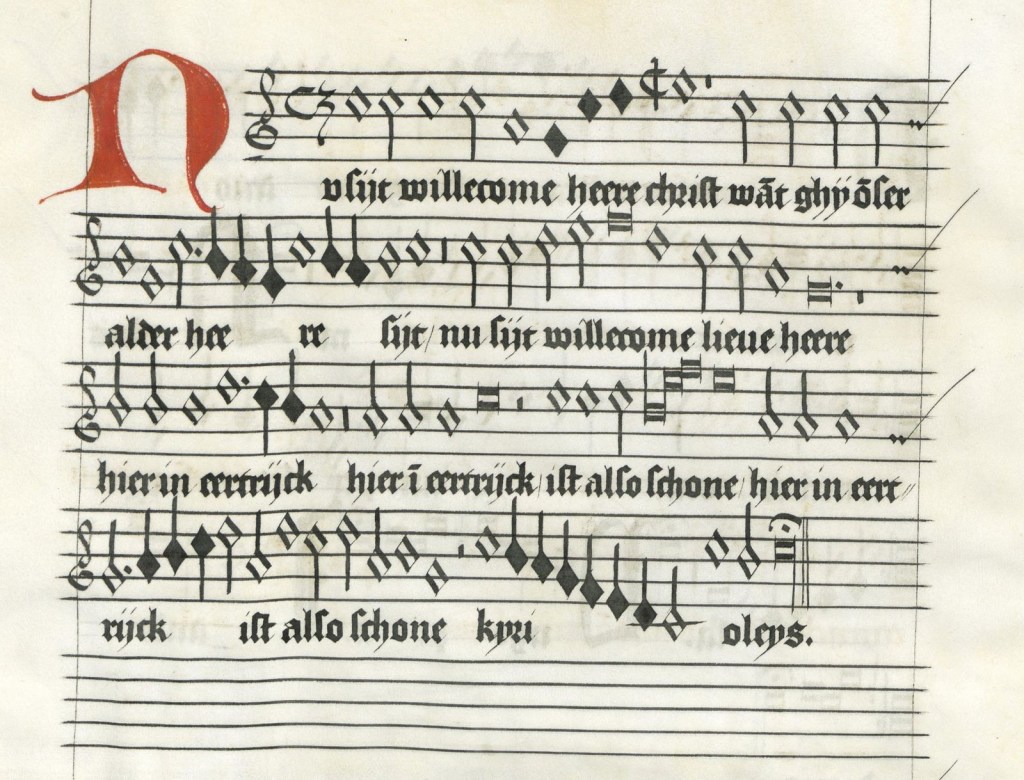 Nv sijt willecome heere christ wāt ghy ōser
alder hee re sijt / nu sijt willecome lieue heere
hier in eertrijck hier ī eertrijck / ist also schone / hier in eert//
rijck ist also schone kyri oleys.